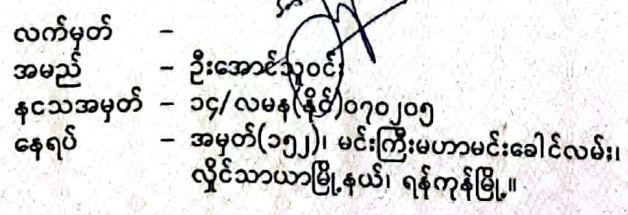 လက်မှတ် -
အမည် - ဦးအောင်သူဝင်း
နငသအမှတ် - ၁၄/လမန(နိုင်)၀၇၀၂၀၅
နေရပ် - အမှတ်(၁၅၂)၊ မင်းကြီးမဟာမင်းခေါင်လမ်း၊
လှိုင်သာယာမြို့နယ်၊ ရန်ကုန်မြို့။